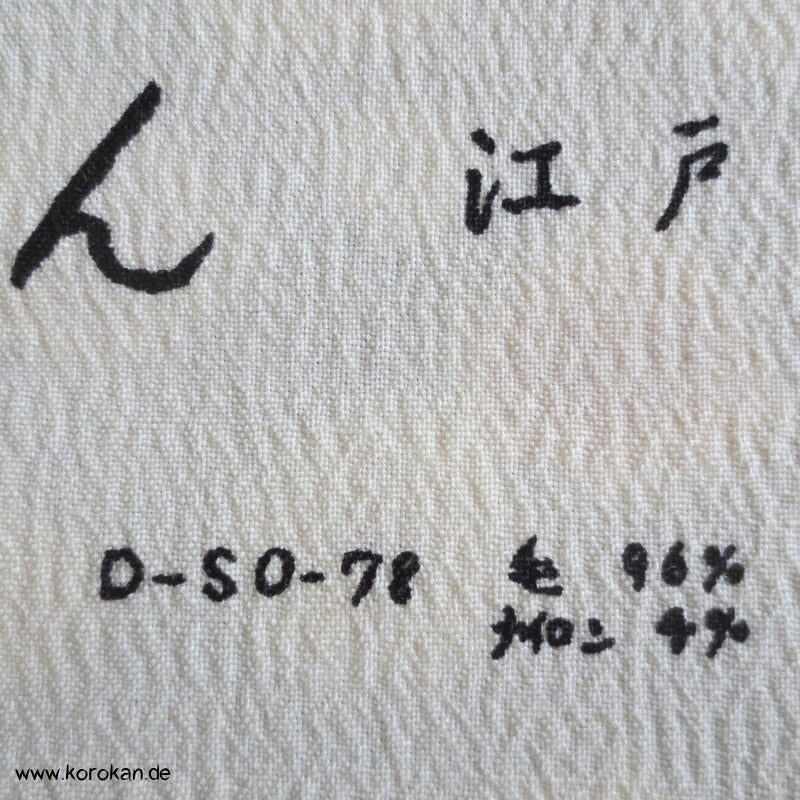 ん 江戸
D-SO-78 毛 96%
ナイロン 4%
www.korokan.de